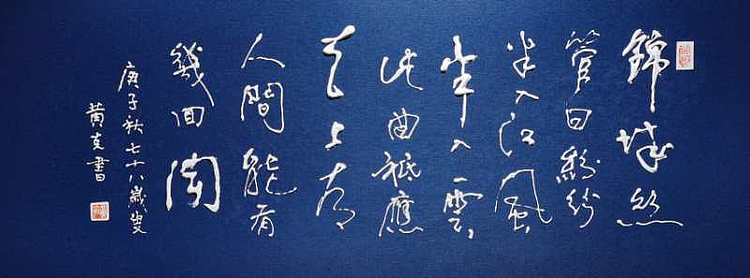 錦城絲
管日紛紛
半入江風
半入雲
此曲祗應
天上有
人間能有
幾回聞
庚子秋七十八歲叟
黄書